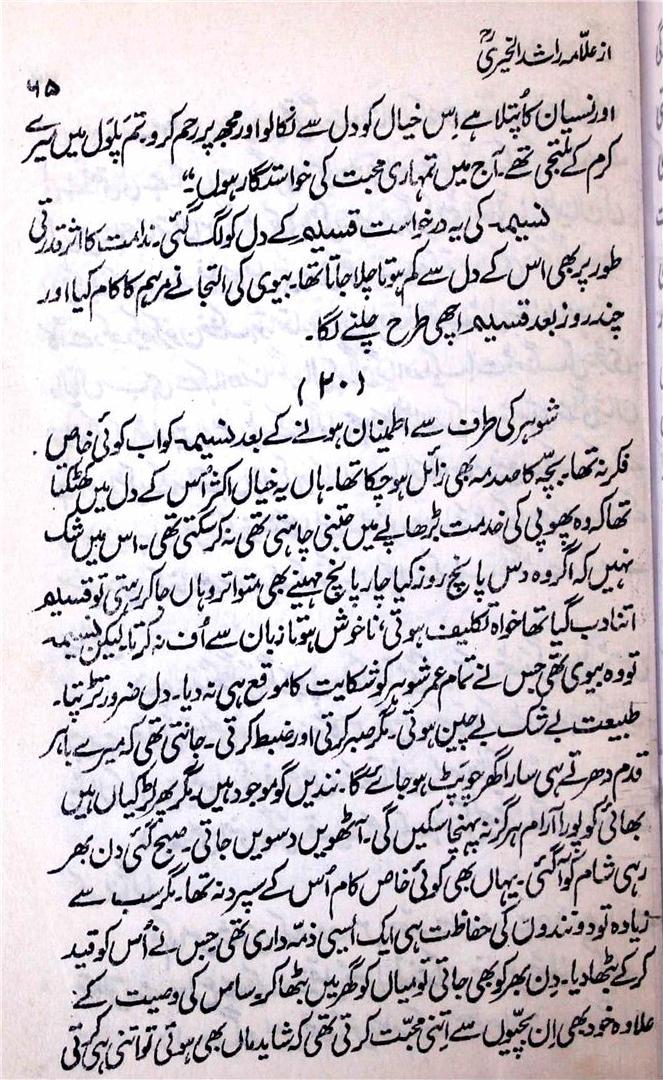 از علامہ راشد الخیریؒ
۶۵
اور نسیان کا پُتلا ہے اِس خیال کو دل سے نکالو اور مجھ پر رحم کرو۔ تم پَلوَل میں میرے
کرم کے ملتجی تھے۔ آج میں تمہاری محبت کی خواستگار ہوں۔"
نسیمہ کی یہ درخواست قسیم کے دل کو لگ گئی۔ ندامت کا اثر قدرتی
طور پر بھی اس کے دل سے کم ہوتا چلا جاتا تھا۔ بیوی کی التجا نے مرہم کا کام کیا اور
چند روز بعد قسیم اچھی طرح چلنے لگا۔
(۲۰)
شوہر کی طرف سے اطمینان ہونے کے بعد نسیمہ کو اب کوئی خاص
فکر نہ تھا۔ بچّہ کا صدمہ بھی زائل ہو چکا تھا۔ ہاں یہ خیال اکثر اُس کے دل میں کھٹکتا
تھا کہ وہ پھوپی کی خدمت بڑھاپے میں جتنی چاہتی تھی نہ کر سکتی تھی۔ اس میں شک
نہیں کہ اگر وہ دس پانچ روز کیا چار پانچ مہینے بھی متواتر وہاں جا کر رہتی تو قسیم
اتنا دب گیا تھا خواہ تکلیف ہوتی، ناخوش ہوتا زبان سے اُف نہ کرتا۔ لیکن نسیمہ
تو وہ بیوی تھی جس نے تمام عمر شوہر کو شکایت کا موقع ہی نہ دیا۔ دل ضرور تڑپتا۔
طبیعت بے شک بے چین ہوتی۔ مگر صبر کرتی اور ضبط کرتی۔ جانتی تھی کہ میرے باہر
قدم دھرتے ہی سارا گھر چوپٹ ہو جائے گا۔ نندیں گو موجود ہیں۔ مگر پھر لڑکیاں ہیں
بھائی کو پورا آرام ہرگز نہ پہنچا سکیں گی۔ آٹھویں دسویں جاتی۔ صبح گئی دن بھر
رہی شام کو آ گئی۔ یہاں بھی کوئی خاص کام اُس کے سپرد نہ تھا۔ مگر سب سے
زیادہ تو دو نندوں کی حفاظت ہی ایک ایسی ذمّہ داری تھی جس نے اُس کو قید
کر کے بٹھا دیا۔ دن بھر کو بھی جاتی تو میاں کو گھر میں بٹھا کر۔ ساس کی وصیت کے
علاوہ خود بھی اِن بچیوں سے اِتنی محبّت کرتی تھی کہ شاید ماں بھی ہوتی تو اتنی ہی کرتی